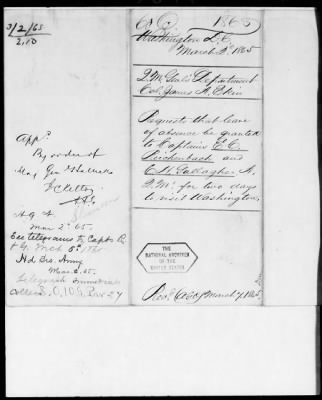 3/2/65
2,10
App.
By order of
Maj Gen Halleck
J C Kelton
A.A.G.
A G O
Mar 2 65.
See telegrams to Capts R.
& G. Mch
Hd Qrs. Army
Mar. 2. 65.
Telegraph
S.O. 106 Par 27
1865
Washington D.C.
March 2 1865
Q.M. Genl's Department
Col. James A. Ekin
Requests that leave
of absence be granted
to Captains E. C.
Reichenbach and
C. H. Gallagher A.
Q.M. for two days
to visit Washington.
THE
NATIONAL ARCHIVES
OF THE
UNITED STATES
March 7, 1865